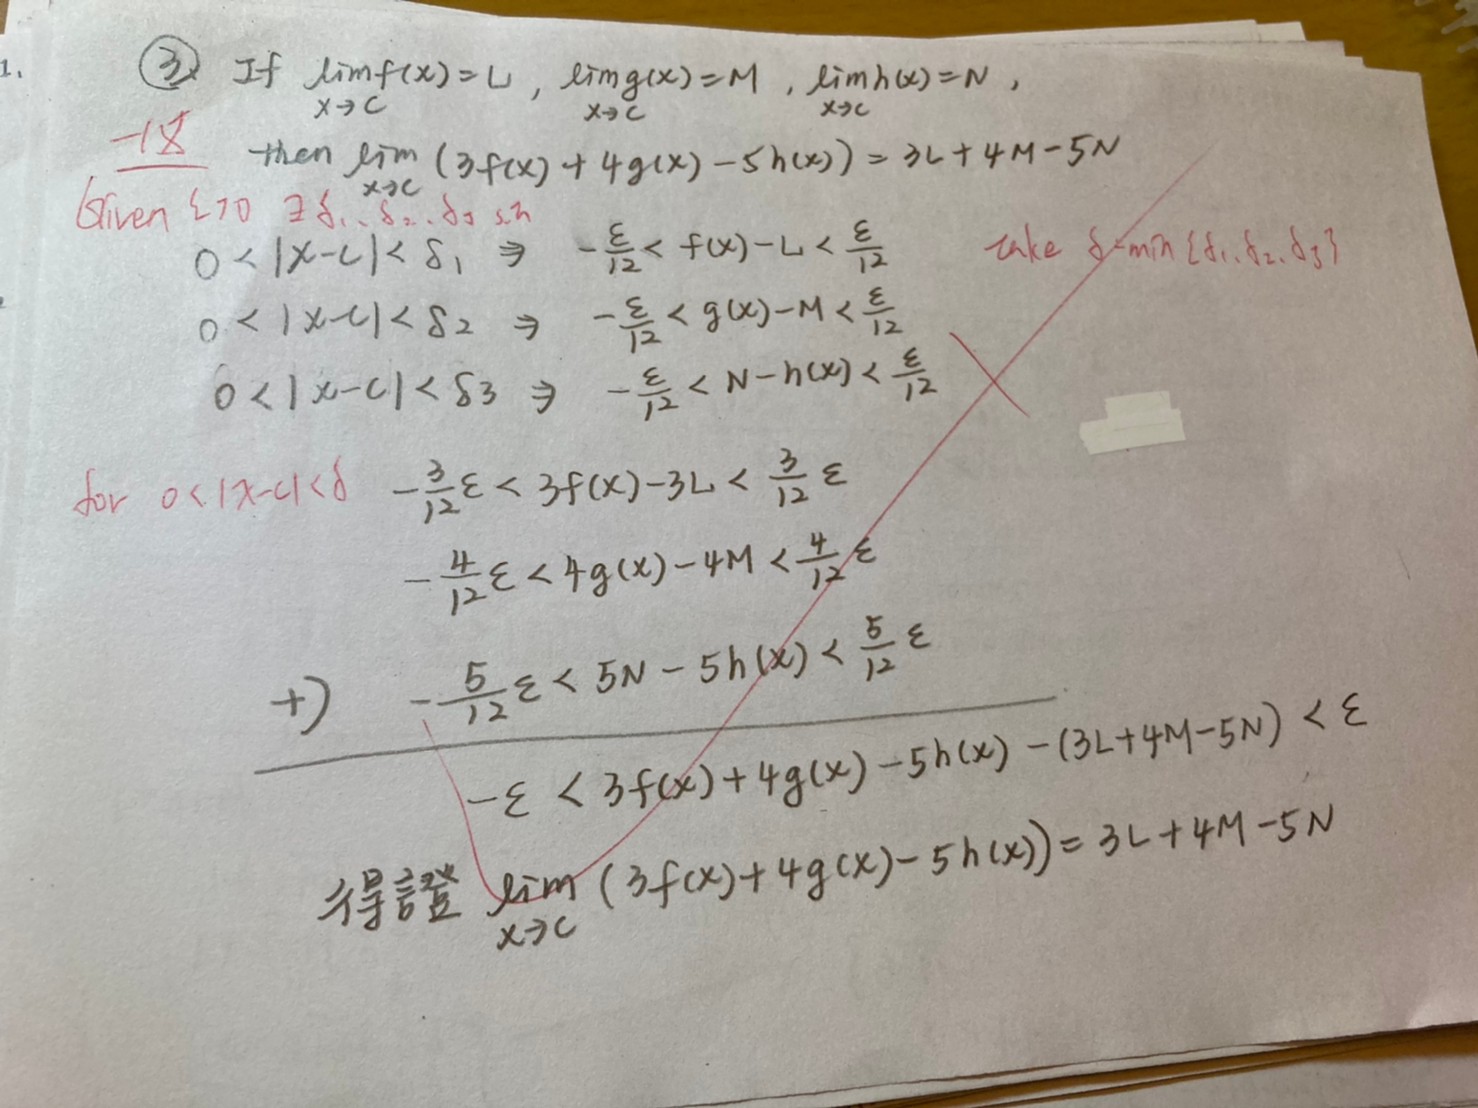 1.
③ If lim f(x)=L , lim g(x)=M , lim h(x)=N ,
x→c x→c x→c
then lim (3f(x)+4g(x)-5h(x))=3L+4M-5N
x→c
Given ε>0 ∃ δ1, δ2, δ3 s.t.
0<|x-c|<δ1 ⇒ -ε/12 < f(x)-L < ε/12 take δ=min{δ1, δ2, δ3}
0<|x-c|<δ2 ⇒ -ε/12 < g(x)-M < ε/12
0<|x-c|<δ3 ⇒ -ε/12 < N-h(x) < ε/12
for 0<|x-c|<δ -3/12 ε < 3f(x)-3L < 3/12 ε
-4/12 ε < 4g(x)-4M < 4/12 ε
+) -5/12 ε < 5N-5h(x) < 5/12 ε
-ε < 3f(x)+4g(x)-5h(x)-(3L+4M-5N) < ε
得證 lim (3f(x)+4g(x)-5h(x))=3L+4M-5N
x→c